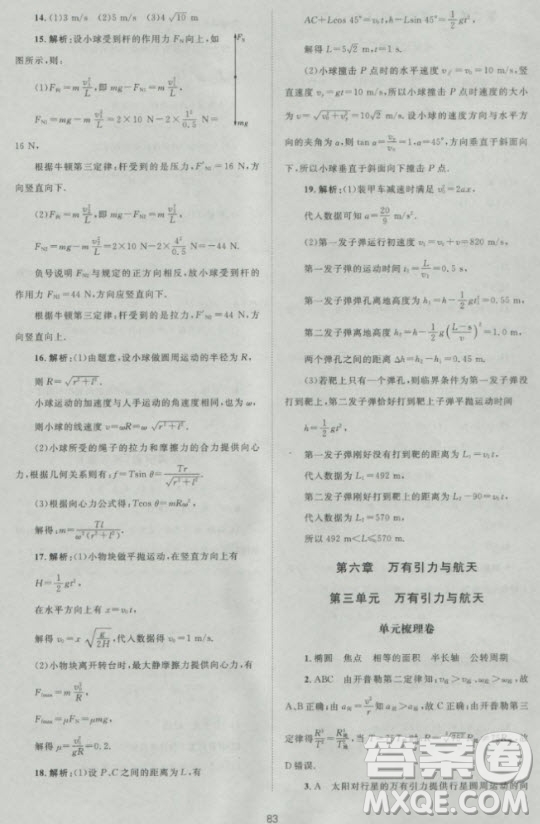 14.(1)3 m/s (2)5 m/s (3)4√10 m/s
15.解析:设小球受到杆的作用力 FN 向上,如
图所示,则:
FN
mg
(1)FN1=m v₁²/L,即 mg-FN2=m v₁²/L
FN2=mg-m v₁²/L=2×10 N-2×2²/0.5 N=
16 N,
根据牛顿第三定律:杆受到的是压力,F'N2=16 N,
方向竖直向下.
(2)FN2=m v₂²/L,即 mg-FN2=m v₂²/L
FN2=mg-m v₂²/L=2×10 N-2×4²/0.5 N=
-44 N
负号说明 FN2 与规定的正方向相反,故小球受到杆的
作用力 FN2=44 N,方向应竖直向下.
根据牛顿第三定律:杆受到的是拉力,F'N2=44 N,方
向竖直向上.
16.解析:(1)由题意,设小球做圆周运动的半径为 R,
则 R=√(r²+l²).
小球运动的加速度与人手运动的角速度相同,也为 ω,
小球的线速度 v=ωR=ω√(r²+l²).
(2)小球所受的绳子的拉力和摩擦力的合力提供向心
力,根据几何关系有:f=Tsin θ=Tr/√(r²+l²)
(3)根据向心力公式得:Tcos θ=mRω²,
解得:m=Tl/(ω²(r²+l²))
17.解析:(1)小物块做平抛运动,在竖直方向上有
H=1/2 gt²,
在水平方向上有 x=v₀t
解得 v₀=x√(g/2H),代入数据得 v₀=1 m/s.
(2)小物块离开转台时,由最大静摩擦力提供向心力,
有
Ffmax=m v₀²/R
Ffmax=μFN=μmg
解得 μ=v₀²/gR=0.2.
18.解析:(1)设 P、C 之间的距离为 L,根据运动有
AC+Lcos 45°=v₀t,h-Lsin 45°=1/2 gt²
解得 L=5√2 m,t=1 s.
(2)小球撞击 P 点时的水平速度 v₀=10 m/s,竖直
速度 vy=gt=10 m/s,所以小球撞击 P 点时速度的大小 v
=√(v₀²+vy²)=10√2 m/s,设小球的速度方向与水平方向
的夹角为 α,则 tan α=vy/v₀=1,方向垂直于斜面向
下,所以小球垂直于斜面向下撞击 P 点.
19.解析:(1)装甲车减速时满足 v₀²=2ax,
代入数据可得 a=20/9 m/s².
(2)第一发子弹运行初速度 v₁=v₀+v=820 m/s,
第一发子弹的运动时间 t₁=L/v₁=0.5 s,
第一发子弹弹孔离地高度 h₁=h-1/2 gt₁²=0.55 m,
第二发子弹离地高度 h₂=h-1/2 g((L-s)/v)²=1.0 m,
两个弹孔之间的距离 Δh=h₂-h₁=0.45 m.
(3)若靶上只有一个弹孔,则临界条件为第一发子弹
与第二发子弹恰好打到靶上子弹运动时间
h=1/2 gt²,
第一发子弹刚好没有打到靶的距离 L₁=v₁t,
代入数据得 L₁=492 m,
第二发子弹刚好打到靶上的距离 L₂-90=v₂t,
代入数据得 L₂=570 m,
所以 492 m<L≤570 m.
第六章 万有引力与航天
第三单元 万有引力与航天
单元梳理卷
1.椭圆 焦点 相等的面积 半长轴 公转周期
2.ABC 由开普勒第二定律有
A、B 正确
D 错误.
3.A 太阳对行星的万有引力提供行星圆周运动的向
83
答案圈